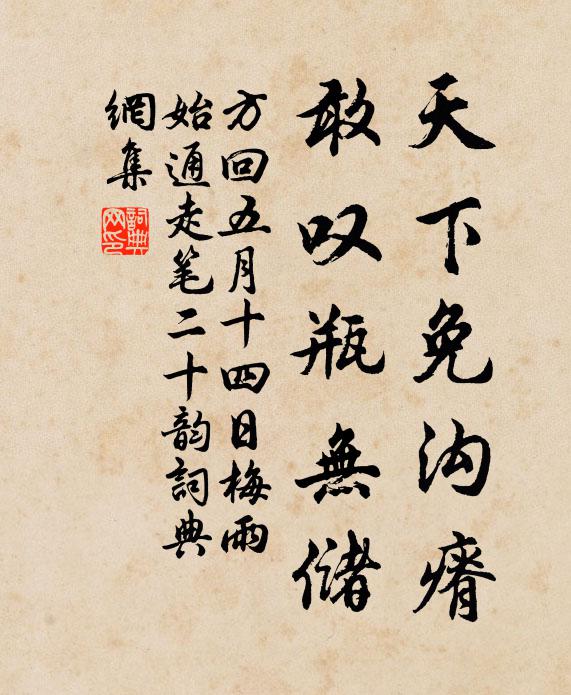 天下免沟瘠
敢叹瓶無储
方回五月十四日梅雨
始通走笔二十韵詞典
網集
詞典网印